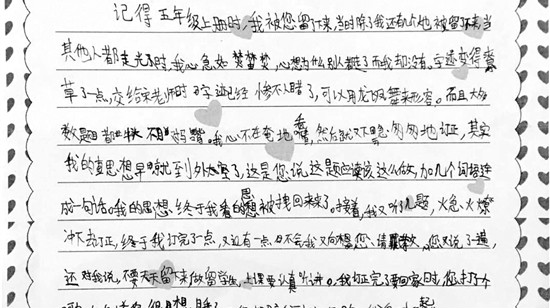 记得五年级上册时,我被您留了下来,当时除了我还有几个也被留下来,当
其他人都走光了时,我心急如焚,心想为什么别人都走了而我却没有。字迹变得潦
草了一点,交给宋老师时字迹已经惨不人睹了,可以用龙飞凤舞来形容。而且大多
数题都 错。我心不在焉地看,然后就又匆匆地订正,其实
我的思想早就到外太空了,这是您说这题应该这么做,加几个词语连
成一句话。我的思想终于被拽回来了。接着,我又听几题,火急火燎
冲下去订正,终于我订完了一点,又近有一点日不会我又向想您、请 ,您又说了一遍,
还对我说,不要天天留下来做留学生,上课要认真听讲。我订正完了要回家时,您打了个